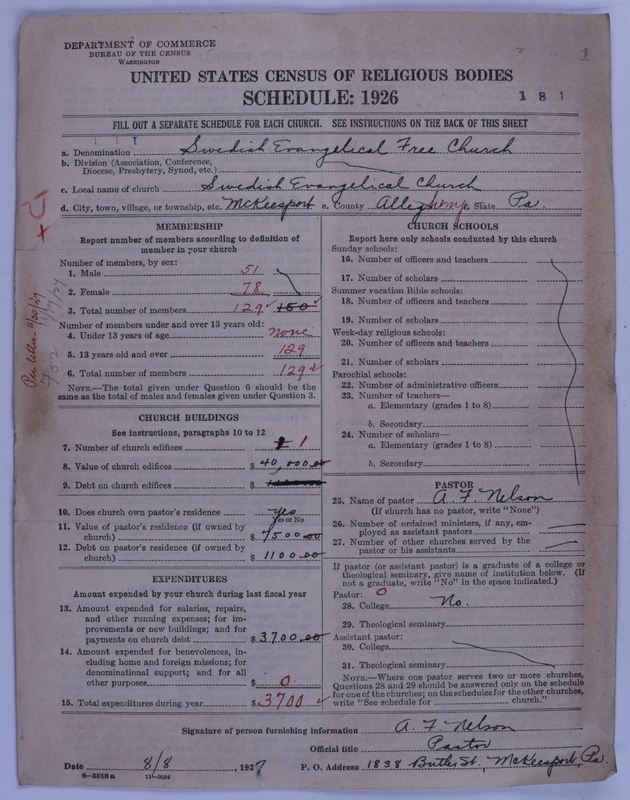 DEPARTMENT OF COMMERCE
BUREAU OF THE CENSUS
WASHINGTON
1
UNITED STATES CENSUS OF RELIGIOUS BODIES
SCHEDULE: 1926
181
FILL OUT A SEPARATE SCHEDULE FOR EACH CHURCH. SEE INSTRUCTIONS ON THE BACK OF THIS SHEET
a. Denomination Swedish Evangelical Free Church
b. Division (Association, Conference, Diocese, Presbytery, Synod, etc.)
c. Local name of church Swedish Evangelical Church
d. City, town, village, or township, etc. McKeesport e. County Allegheny f. State Pa.
MEMBERSHIP
Report number of members according to definition of
member in your church
Number of members, by sex:
1. Male 51
2. Female 78
3. Total number of members 129 150
Number of members under and over 13 years old:
4. Under 13 years of age none
5. 13 years old and over 129
6. Total number of members 129
NOTE.—The total given under Question 6 should be the
same as the total of males and females given under Question 3.
Per letter 11/30/27
CHURCH BUILDINGS
See instructions, paragraphs 10 to 12
7. Number of church edifices 1
8. Value of church edifices $ 40,000.00
9. Debt on church edifices $
10. Does church own pastor's residence yes
Yes or No
11. Value of pastor's residence (if owned by
church) $ 7500.00
12. Debt on pastor's residence (if owned by
church) $ 1100.00
EXPENDITURES
Amount expended by your church during last fiscal year
13. Amount expended for salaries, repairs,
and other running expenses; for im-
provements or new buildings; and for
payments on church debt $ 3700.00
14. Amount expended for benevolences, in-
cluding home and foreign missions; for
denominational support; and for all
other purposes $ 0
15. Total expenditures during year $ 3700
CHURCH SCHOOLS
Report here only schools conducted by this church
Sunday schools:
16. Number of officers and teachers
17. Number of scholars
Summer vacation Bible schools:
18. Number of officers and teachers
19. Number of scholars
Week-day religious schools:
20. Number of officers and teachers
21. Number of scholars
Parochial schools:
22. Number of administrative officers
23. Number of teachers—
a. Elementary (grades 1 to 8)
b. Secondary
24. Number of scholars—
a. Elementary (grades 1 to 8)
b. Secondary
PASTOR
25. Name of pastor A. F. Nelson
(If church has no pastor, write "None")
26. Number of ordained ministers, if any, em-
ployed as assistant pastors
27. Number of other churches served by the
pastor or his assistants
If pastor (or assistant pastor) is a graduate of a college or
theological seminary, give name of institution below. (If
not a graduate, write "No" in the space indicated.)
Pastor: 0
28. College No.
29. Theological seminary
Assistant pastor:
30. College
31. Theological seminary
NOTE.—Where one pastor serves two or more churches,
Questions 28 and 29 should be answered only on the schedule
for one of the churches; on the schedules for the other churches,
write "See schedule for church."
Signature of person furnishing information A. F. Nelson
Official title Pastor
Date 8/8, 1927 P. O. Address 1838 Butler St., McKeesport, Pa.
8-5518a 11-9034